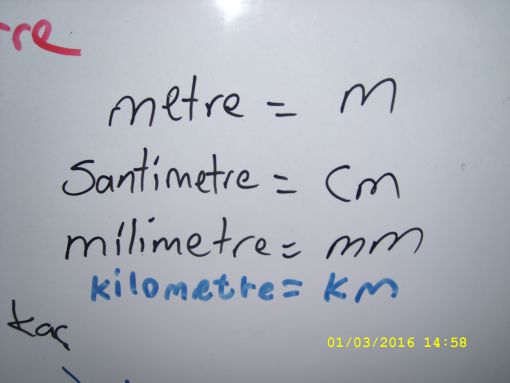 rre
metre = m
Santimetre = cm
milimetre = mm
kilometre = km
kaç
01/03/2016 14:58